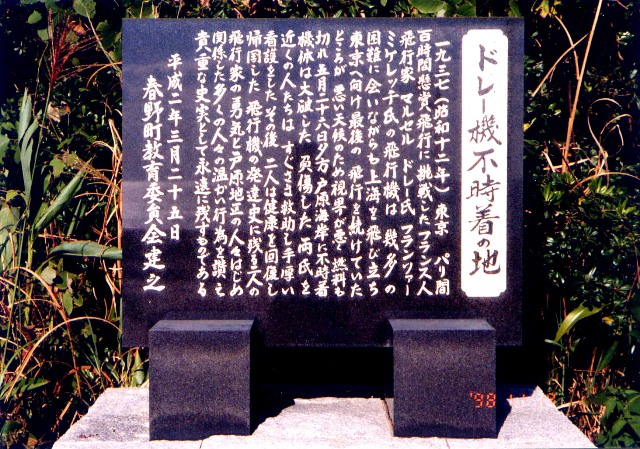 ドレー機不時着の地
一九三七(昭和十二年)東京 パリ間
百時間懸賞飛行に挑戦したフランス人
飛行家 マルセル ドレー氏、フランソァー
ミケレッチ氏の飛行機は 幾多の
困難に会いながらも上海を飛び立ち
東京へ向け最後の飛行を続けていた
ところが 悪い天候のため視界が悪く燃料も
切れ五月二十六日夕方 戸原海岸に不時着
機体は大破した 負傷した両氏を
近くの人たちは すぐさま救助し手厚い
看護をした その後 二人は健康を回復し
帰国した 飛行機の発達史に残る二人の
飛行家の勇気と戸原地区の人々をはじめ
関係した多くの人々の温かい行為を讃え
貴重な史実として永遠に残すものである
平成二年三月二十五日
春野町教育委員会建之
'98